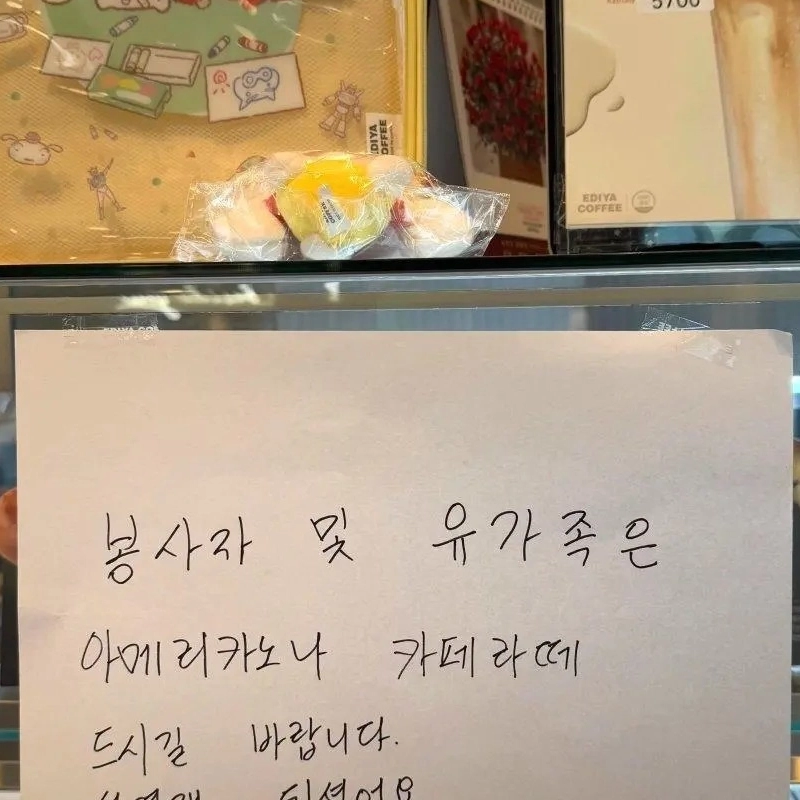 5700
EDIYA
COFFEE
EDIYA
COFFEE
봉사자 및 유가족은
아메리카노나 카페라떼
드시길 바랍니다.
되셨어요